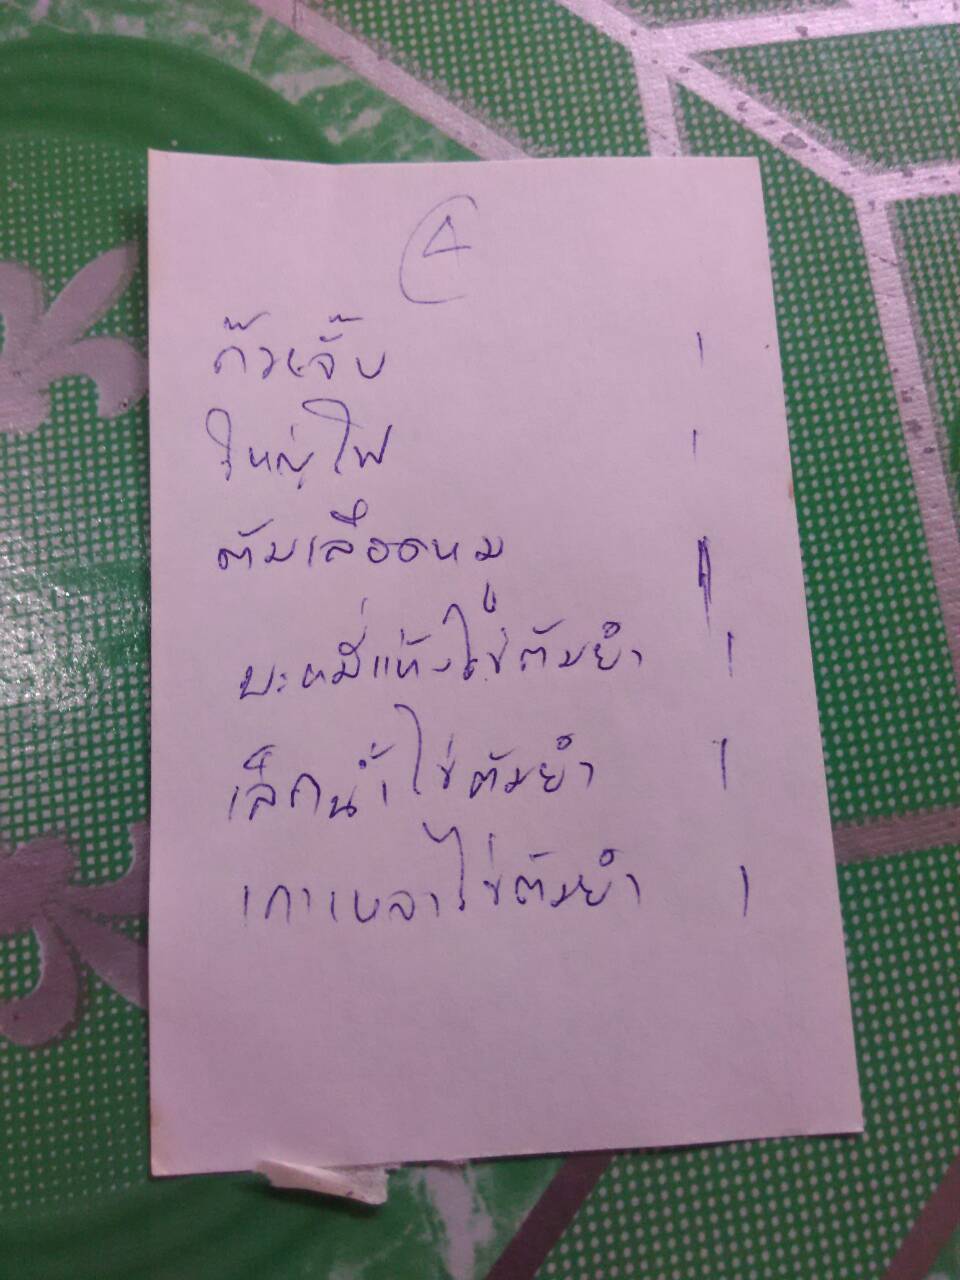 4
ก๊วยจั๊บ 1
ใหญ่ไฟ 1
ต้มเลือดหมู 1
บะหมี่แห้งไข่ต้มยำ 1
เล็กน้ำไข่ต้มยำ 1
เกาเหลาไข่ต้มยำ 1